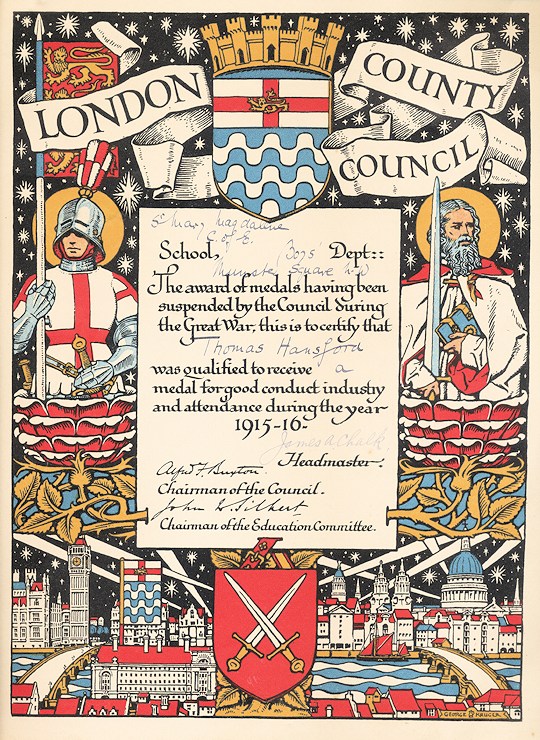 LONDON
COUNTY
COUNCIL
St Mary Magdalene
C of E
School, Boys' Dept::
Munster Square N.W
The award of medals having been
suspended by the Council during
the Great War, this is to certify that
Thomas Hansford
was qualified to receive a
medal for good conduct industry
and attendance during the year
1915-16-
James A Chalk
Headmaster:
Alfred F. Buxton.
Chairman of the Council.
John W. Gilbert
Chairman of the Education Committee.
GEORGE KRUGER